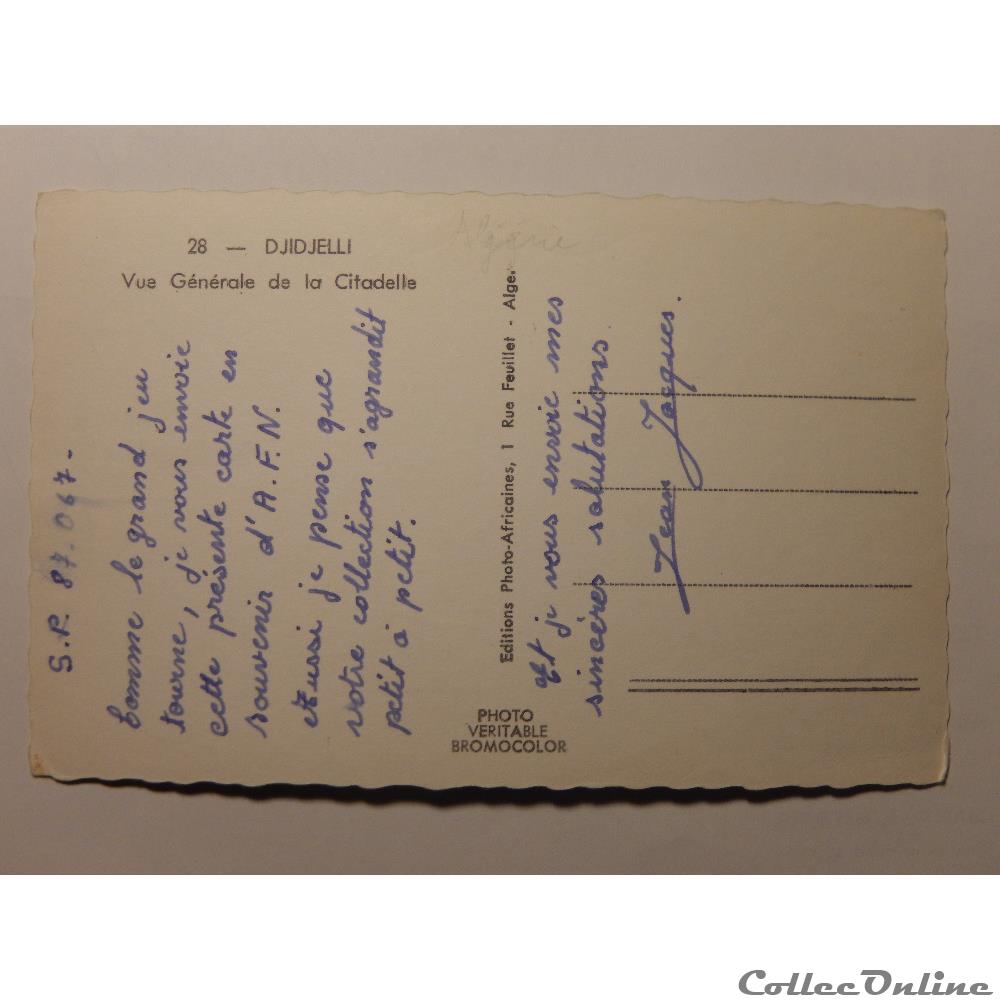 28 — DJIDJELLI
Vue Générale de la Citadelle
Algérie
S.P. 87.067-
Comme le grand jeu
tourne, je vous envoie
cette présente carte en
souvenir d'A.F.N.
Aussi je pense que
votre collection s'agrandit
petit à petit.
Editions Photo-Africaines, 1 Rue Feuillet - Alge.
Et je vous envoie mes
sincères salutations.
Jean Jacques.
PHOTO
VERITABLE
BROMOCOLOR
CollecOnline